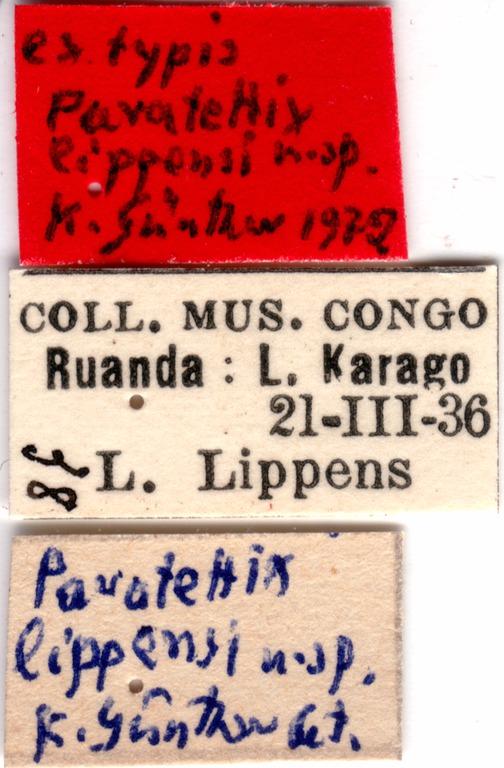 ex typis
Paratettix
lippensi n.sp.
K. Günther 1972
COLL. MUS. CONGO
Ruanda : L. Karago
21-III-36
L. Lippens
Paratettix
lippensi n.sp.
K. Günther det.